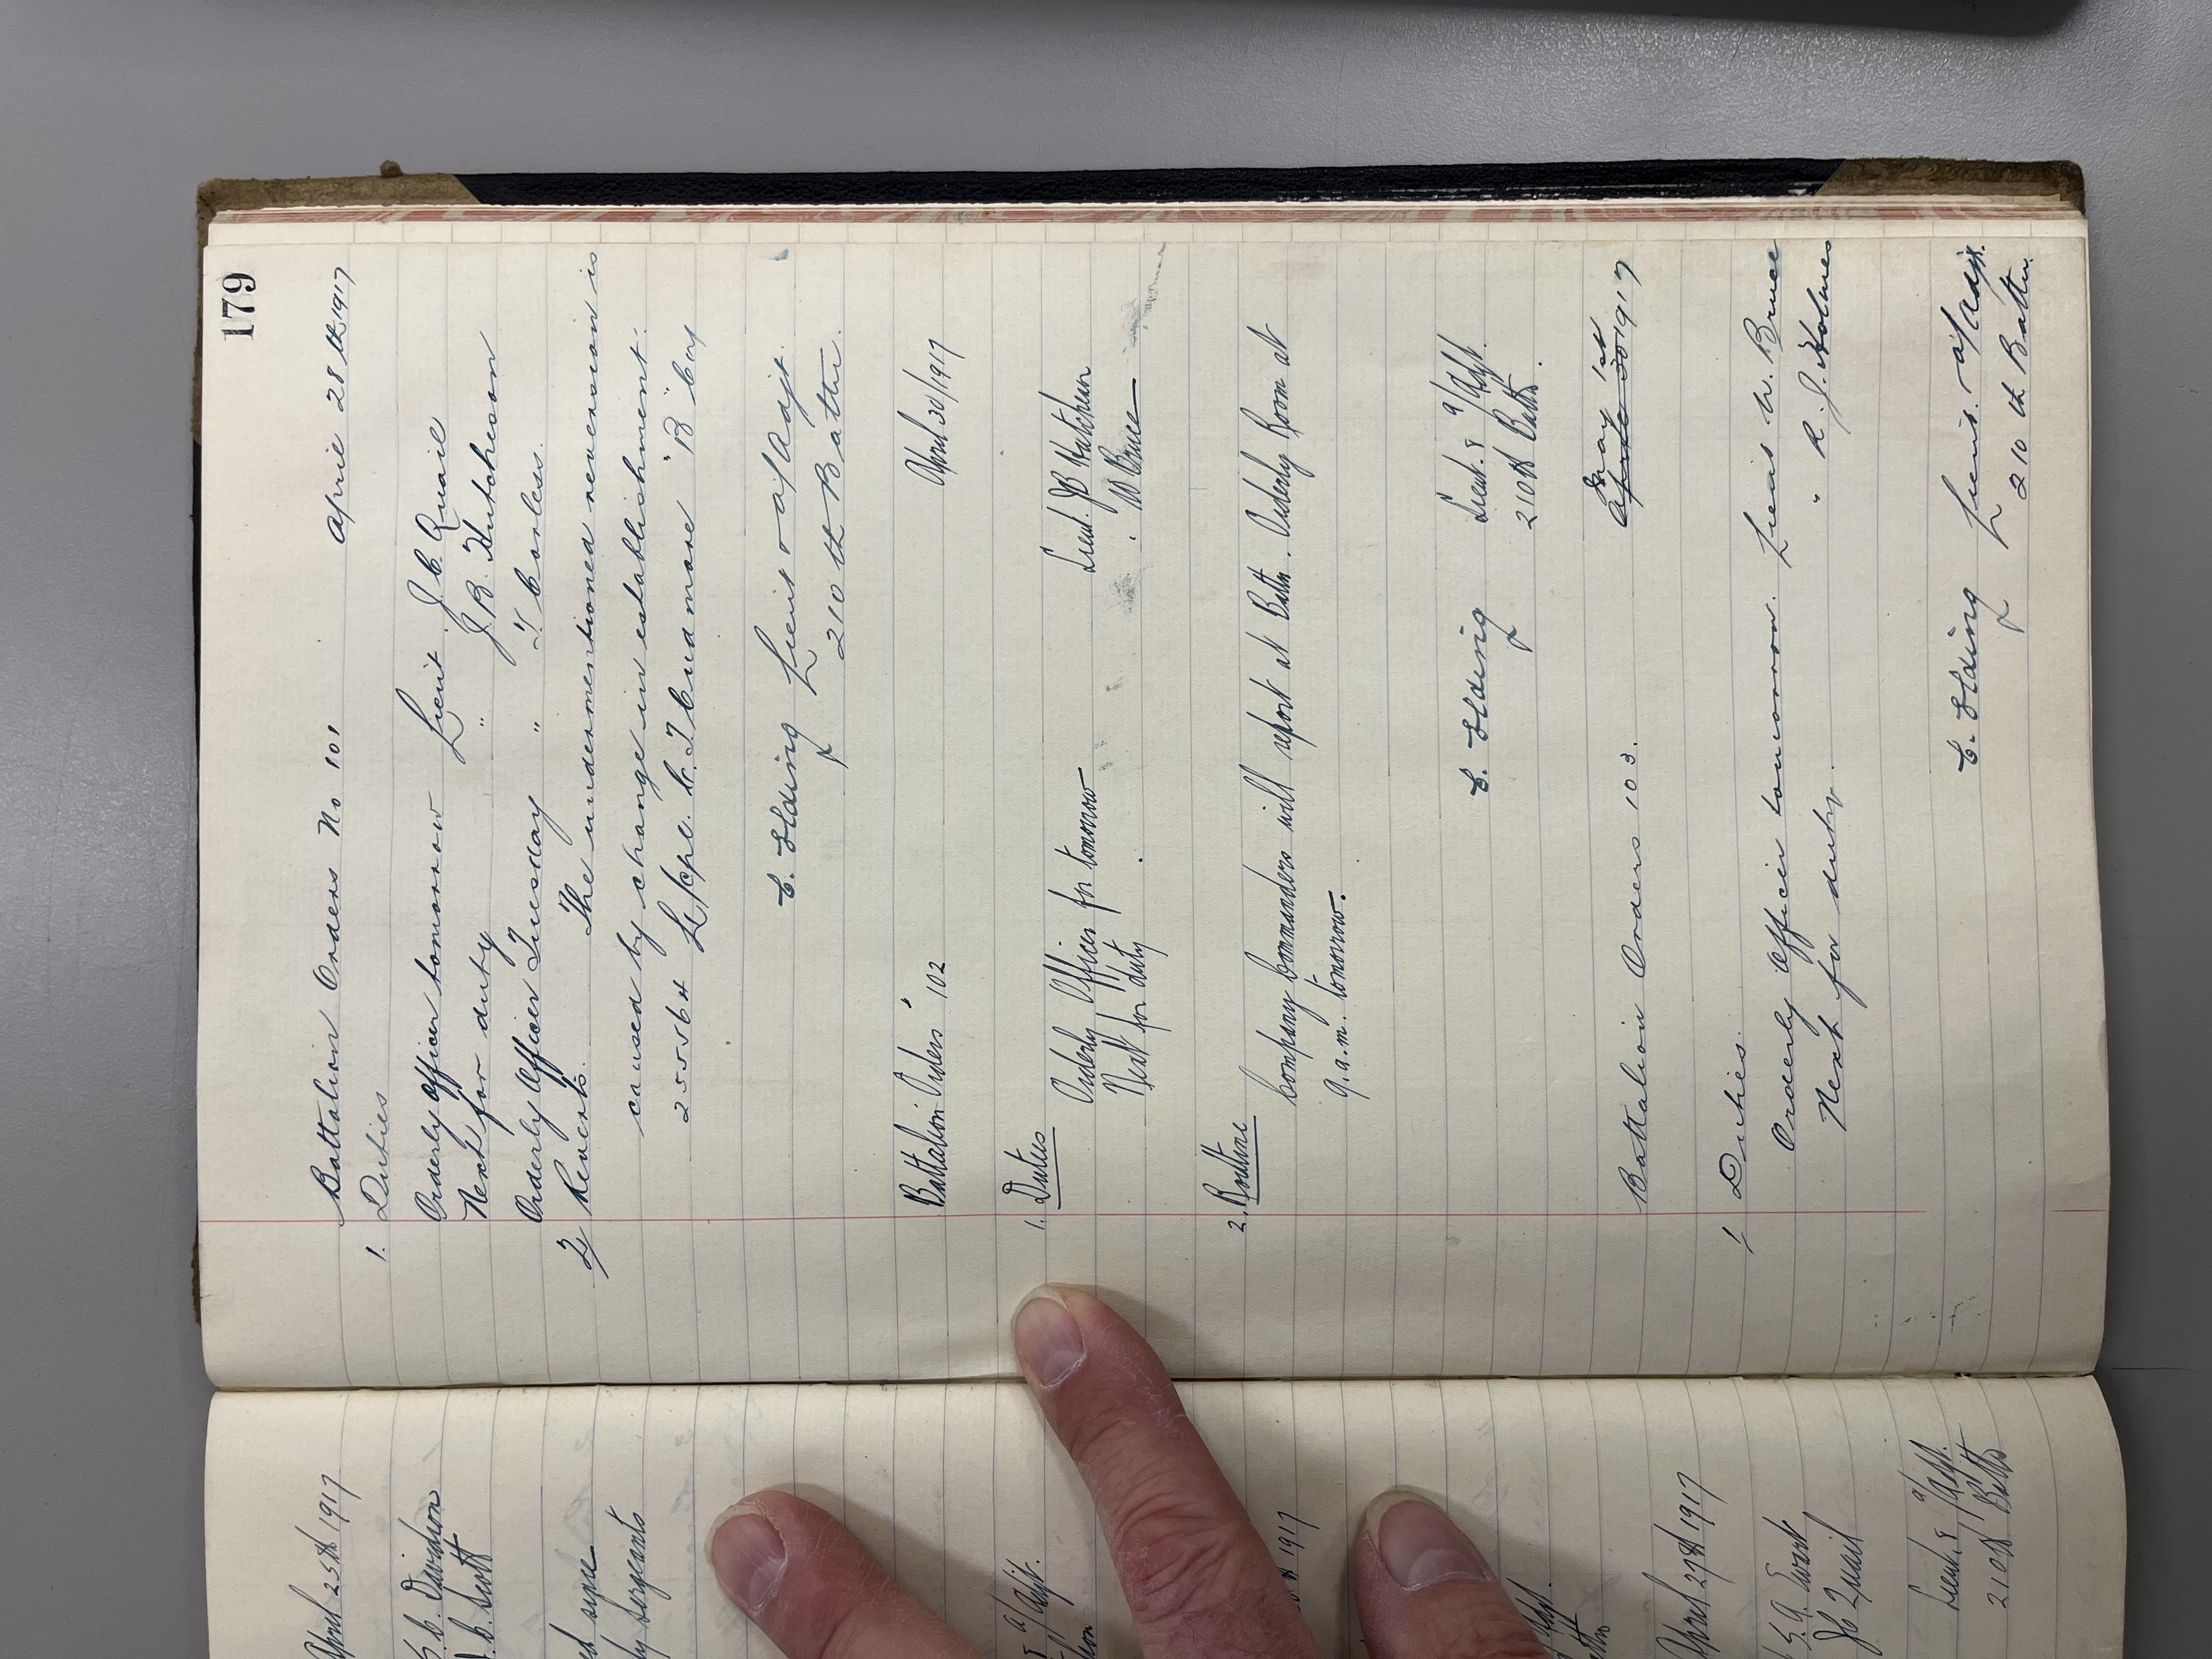 179
Battalion Orders No 101 April 28th 1917
1. Duties
Orderly Officer tomorrow Lieut. J. C. Quail
Next for duty " J. B. Hutcheson
Orderly Officer Tuesday " T. Corless.
2/ Reverts. The undermentioned reversion is
caused by change in establishment.
255564 L/Cpl. C. T. Cudmore "B" Coy
Lieut & a/Adjt.
210th Battn.
Battalion Orders 102 April 30/1917
1. Duties
Orderly Officer for tomorrow Lieut. JB Hutcheson
Next for duty . " W Bruce
2. Routine
Company Commanders will report at Battn. Orderly Room at
9. a.m. tomorrow.
Lieut. & a/Adjt.
210th Battn.
Battalion Orders 103. May 1st
April 30 1917
1 Duties.
Orderly Officer tomorrow. Lieut W. Bruce
Next for duty. " R. J. Holmes
Lieut. a/Adjt.
210th Battn.
April 25th 1917
C. Davidson
C. Scott
sergeants
a/Adjt.
1917
April 27th 1917
JC Quail
Lieut. & a/Adjt.
210th Battn